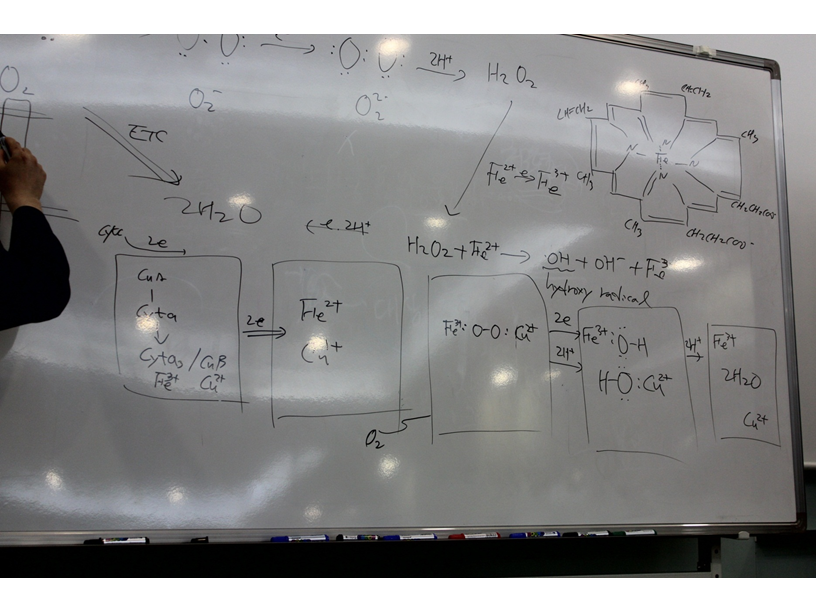 :O O: 2H⁺ → H₂O₂
O₂
O₂⁻
O₂²⁻
ETC
2H₂O
Fe²⁺ -e→ Fe³⁺
N
N Fe N
N
CH=CH₂
CH₃
CH₃
CH₃
CH₂CH₂COO⁻
CH₂CH₂COO⁻
e 2H⁺
H₂O₂ + Fe²⁺ → ·OH + OH⁻ + Fe³
hydroxy radical
Cytc 2e
CuA
Cyta
Cyta₃ / CuB
Fe³⁺ Cu²⁺
2e
Fe²⁺
Cu¹⁺
O₂
Fe³⁺: O-O: Cu²⁺
2e
2H⁺
Fe³⁺ :O-H
H-O: Cu²⁺
2H⁺
Fe³⁺
2H₂O
Cu²⁺